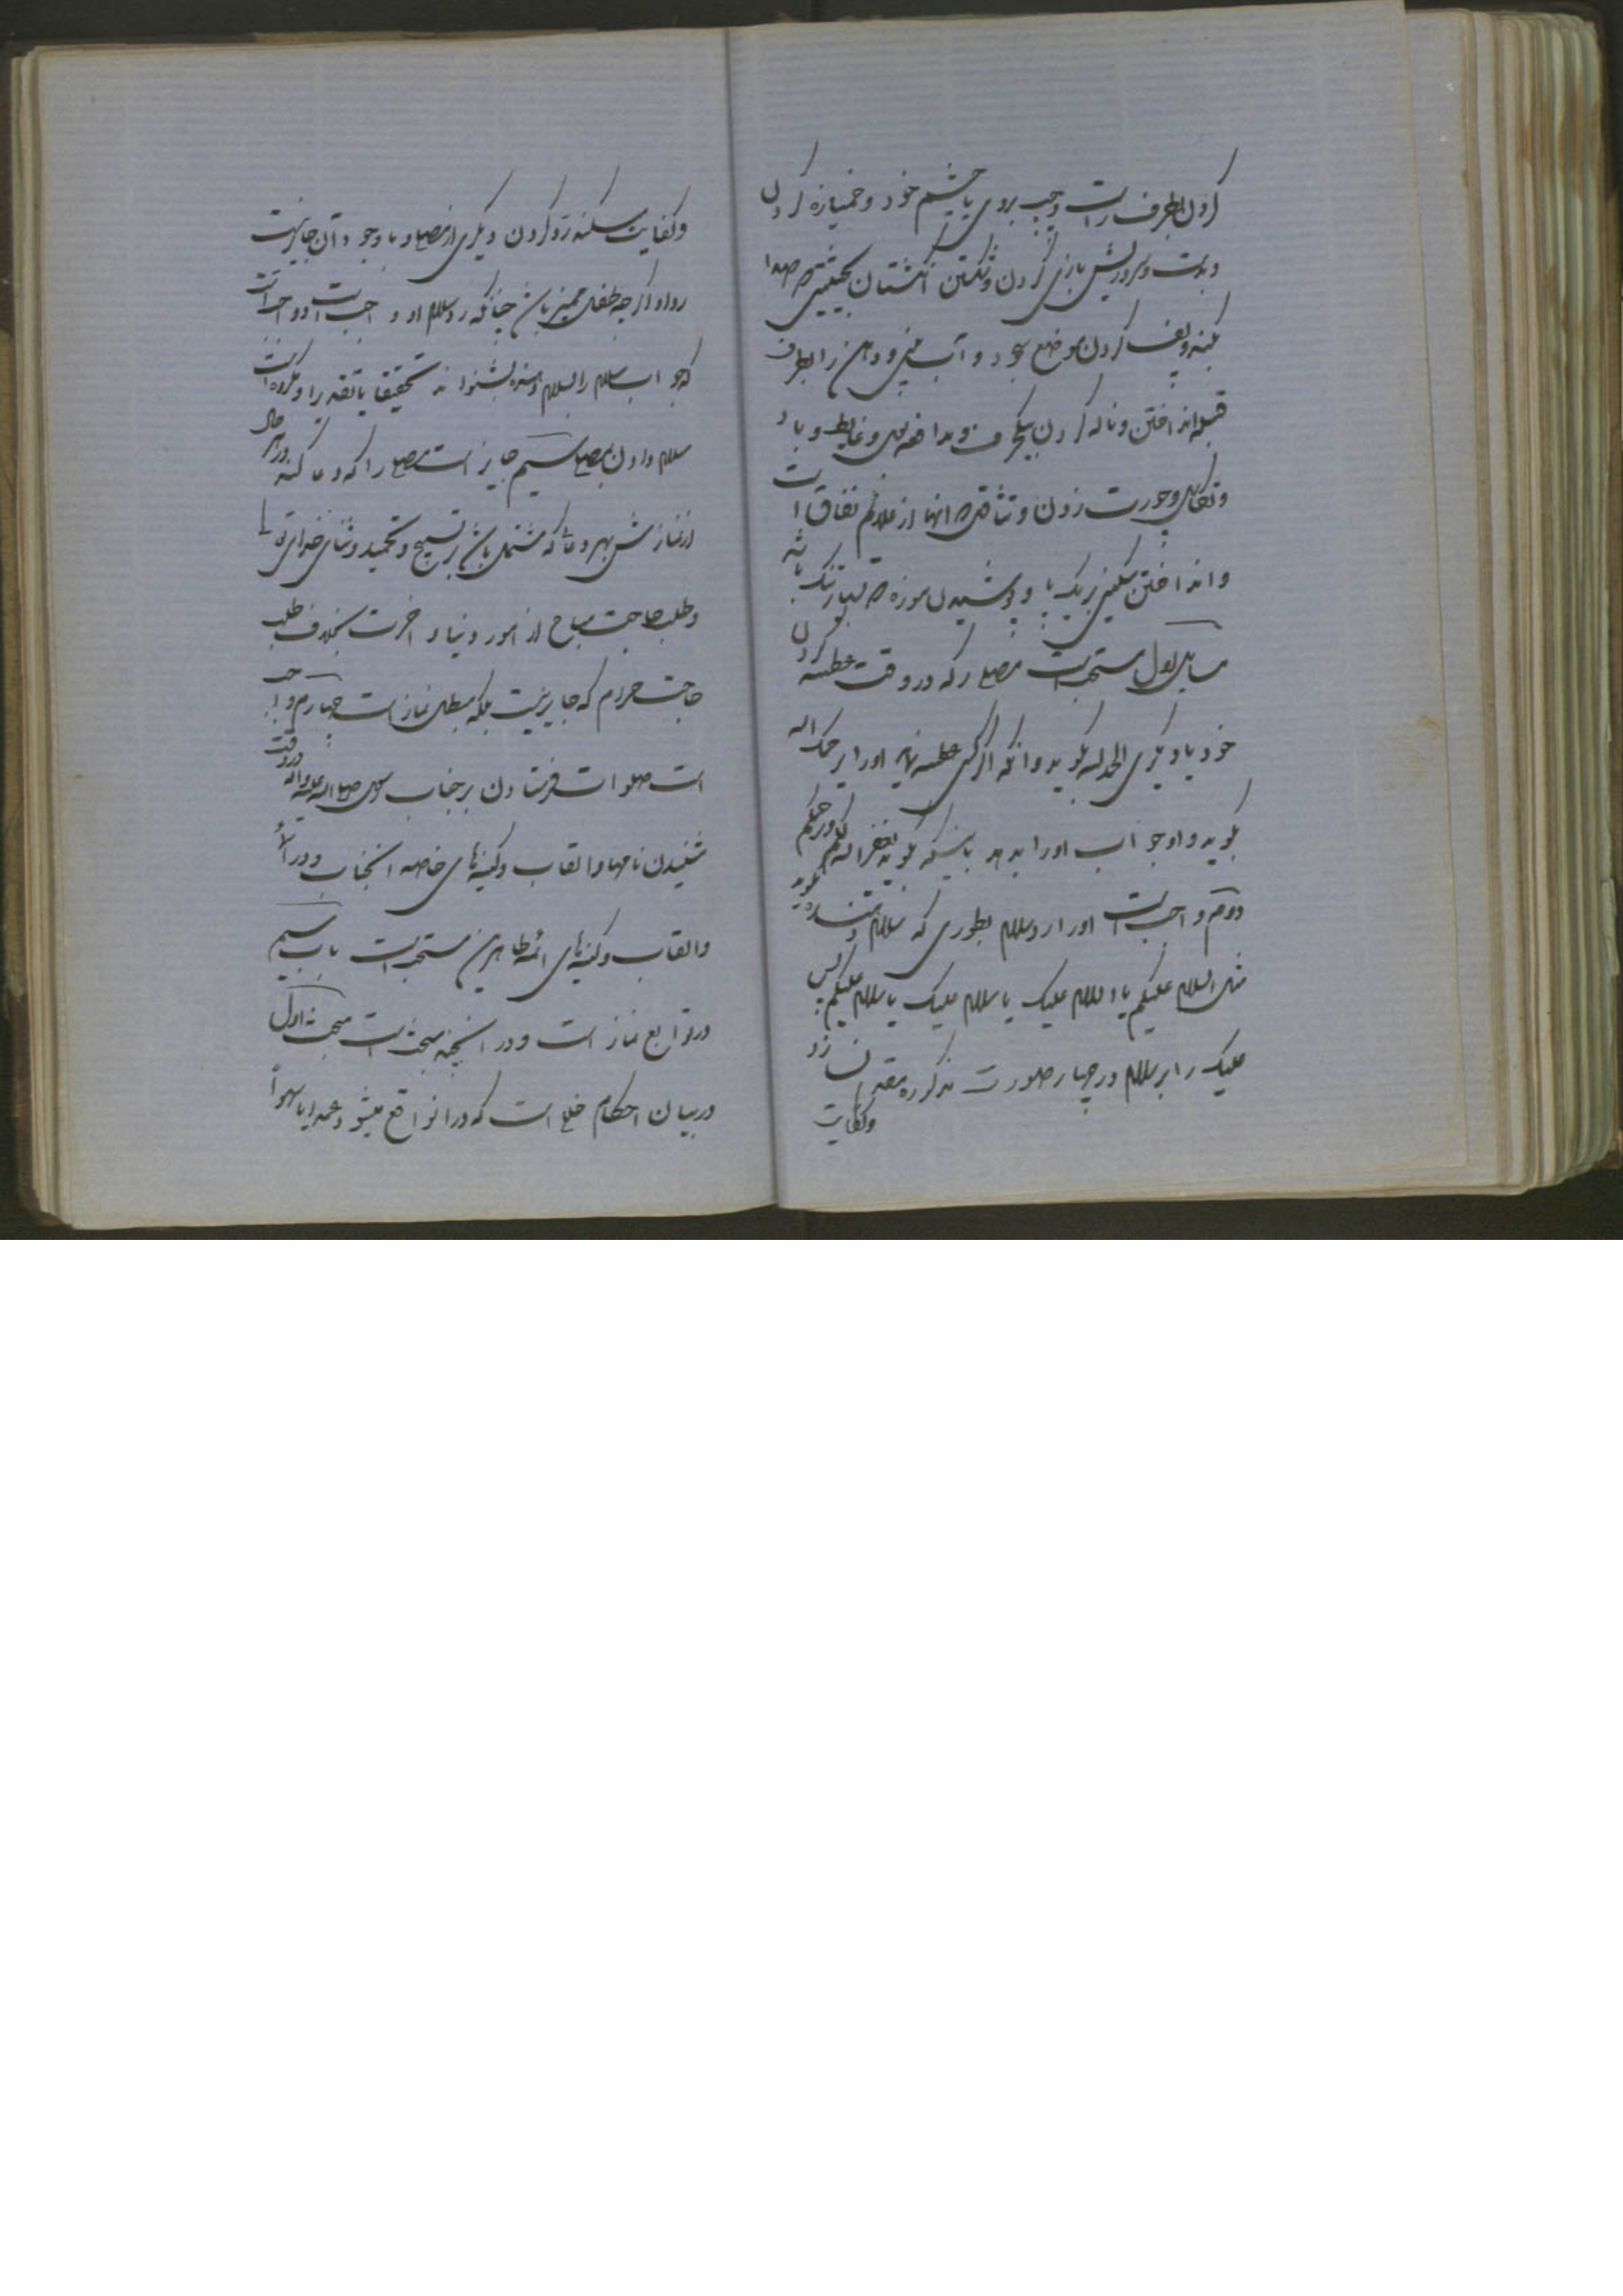 کردن بطرف راست و چپ بروی یا چشم خود و خمیازه کردن
و بدست و سر و ریش بازی کردن و شکستن انگشتان بحیثیتی که صدا
بکند و پف کردن موضع سجود و آب بینی و دهن را بطرف
قبله انداختن و ناله کردن بیکحرف و مدافعه بول و غایط و باد
و تکاهل و چورت زدن و تثاقل که اینها از علائم نفاق است
و انداختن سنگینی بر یک پا و پوشیدن موزه که بسیار تنک باشد
مسایل اول مستحب است مصلی را که در وقت عطسه کردن
خود یا دیگری الحمد لله بگوید و آنکه اگر کسی عطسه نماید او را یرحمک الله
بگوید و او جواب او را بدهد باینکه بگوید یغفر الله لکم و یرحمکم
دویم واجب است او را رد سلام بطوری که سلام دهنده گوید
مثل السلام علیکم یا السلام علیک یا سلام علیک یا سلام علیکم پس
علیک را بر سلام در چهار صورت مذکوره مقدم نسازد
و کفایت
و کفایت میکند رد کردن دیگری از مصلی و با وجود آن جایز نیست
رد او اگر چه طفل ممیز باشد چنانکه رد سلام او واجب است و واجبست
که جواب سلام را بسلام دهنده بشنواند تحقیقا یا تقدیرا و مکروه است
سلام دادن بمصلی سیم جایز است مصلی را که دعا کند در هر حال
از نمازش بهر دعائی که مشتمل باشد بر تسبیح و تحمید و ثنای خدای تعالی
و طلب حاجت مباح از امور دنیا و اخرت بخلاف طلب
حاجت حرام که جایز نیست بلکه مبطل نماز است چهارم واجب
است صلوات فرستادن بر جناب رسول صلی الله علیه و اله در وقت
شنیدن نامها و القاب و کنیه‌های خاصه انجناب و در اسماء
و القاب و کنیه‌های ائمه طاهرین مستحب است باب سیم
در توابع نماز است و در ان چند مبحث است مبحث اول
در بیان احکام خللی است که در ان واقع میشود عمدا یا سهوا